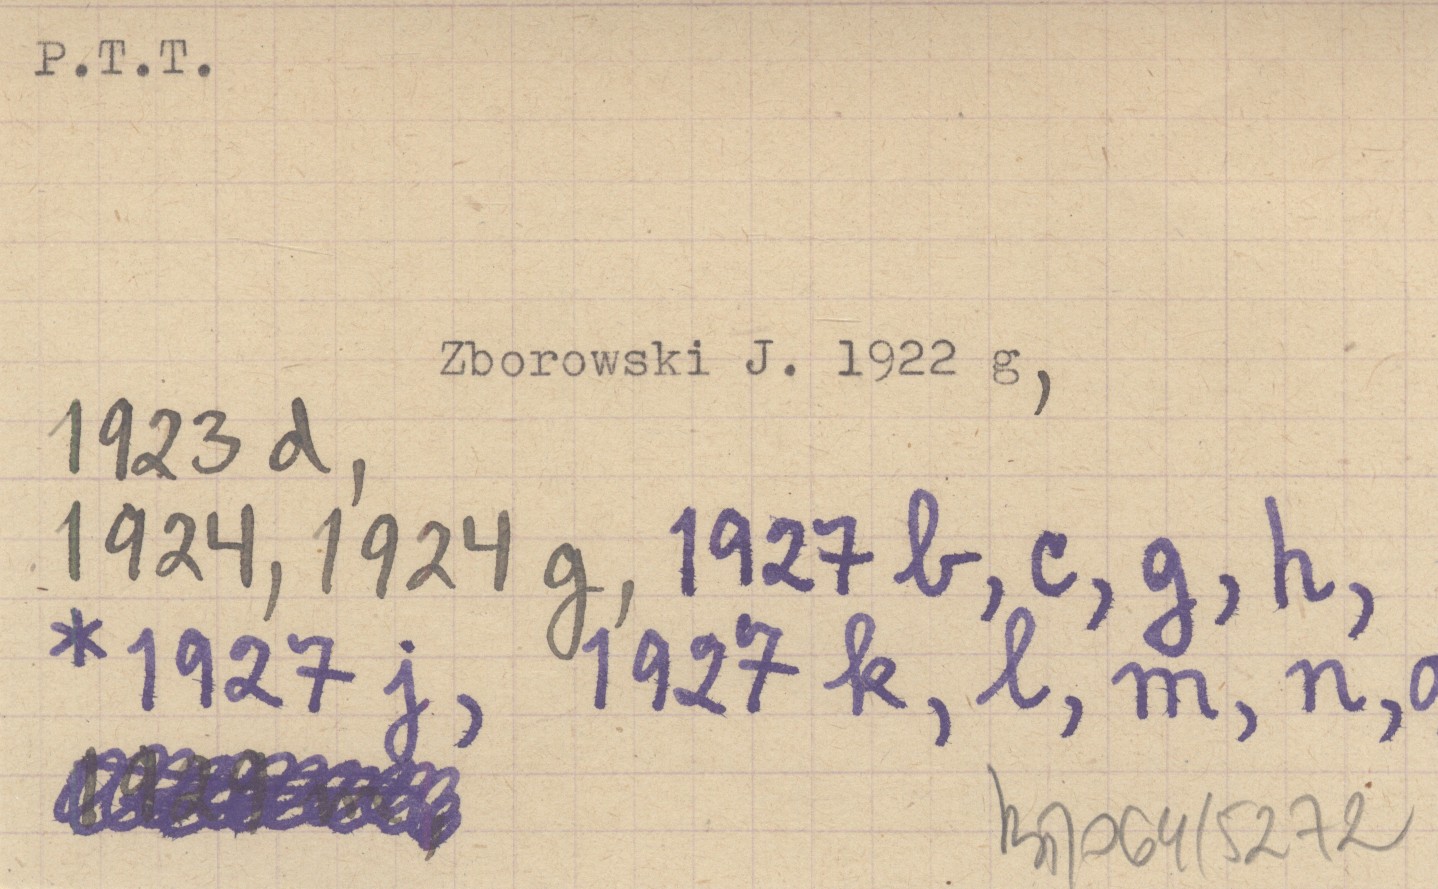 P.T.T.
Zborowski J. 1922 g,
1923 d,
1924, 1924 g, 1927 b, c, g, h,
*1927 j, 1927 k, l, m, n,
064/5272